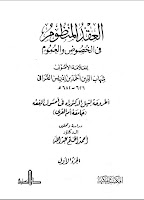 العقد المنظوم
في الخصوص والعموم
للعلامة الأصولي
شهاب الدين أحمد بن إدريس القرافي
٦٢٦ - ٦٨٤هـ
أطروحة لنيل الدكتوراه في أصول الفقه
(جامعة أم القرى)
دراسة وتحقيق
الدكتور
أحمد الختم عبد الله
الجزء الأول
المكتبة المكية